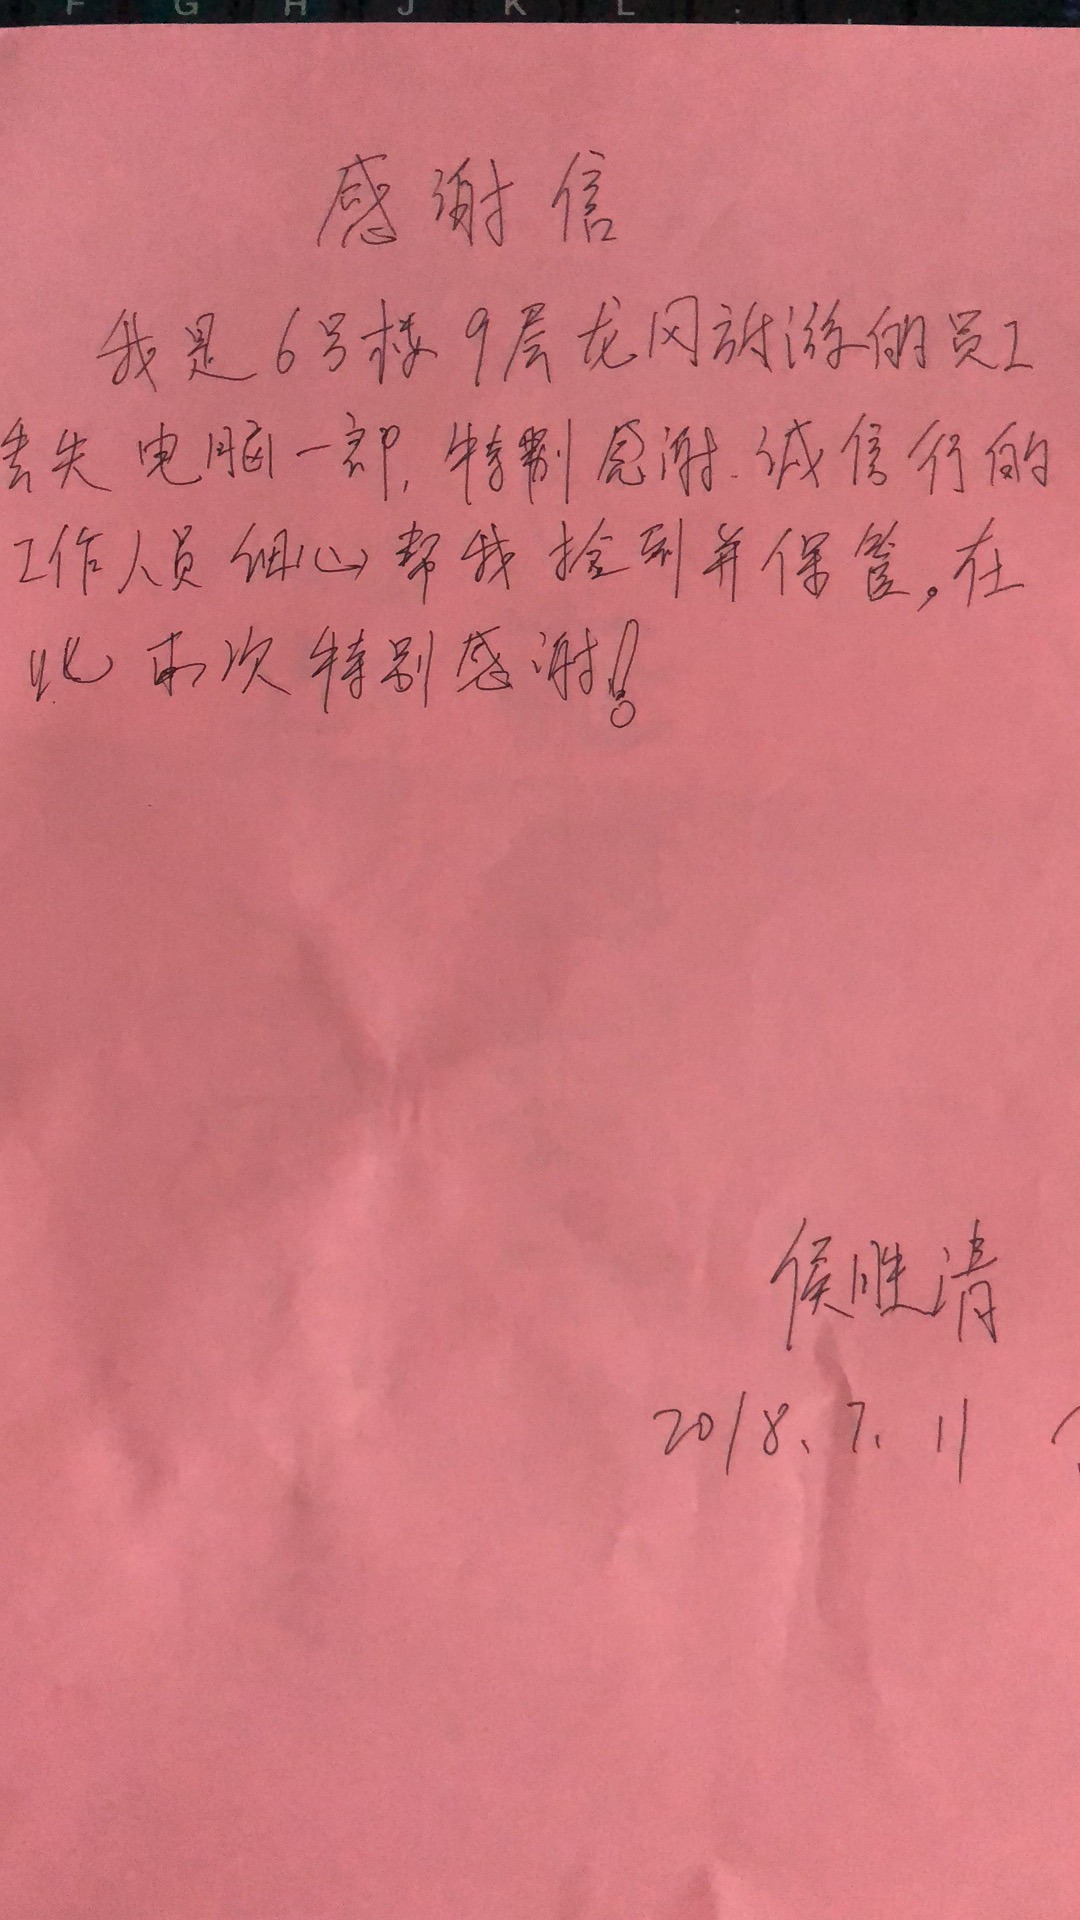 F G H J K L ;
感谢信
我是6号楼9层龙冈旅游的员工
丢失电脑一部,特别感谢.诚信行的
工作人员细心帮我捡到并保管。在
此再次特别感谢!
侯胜清
2018.7.11